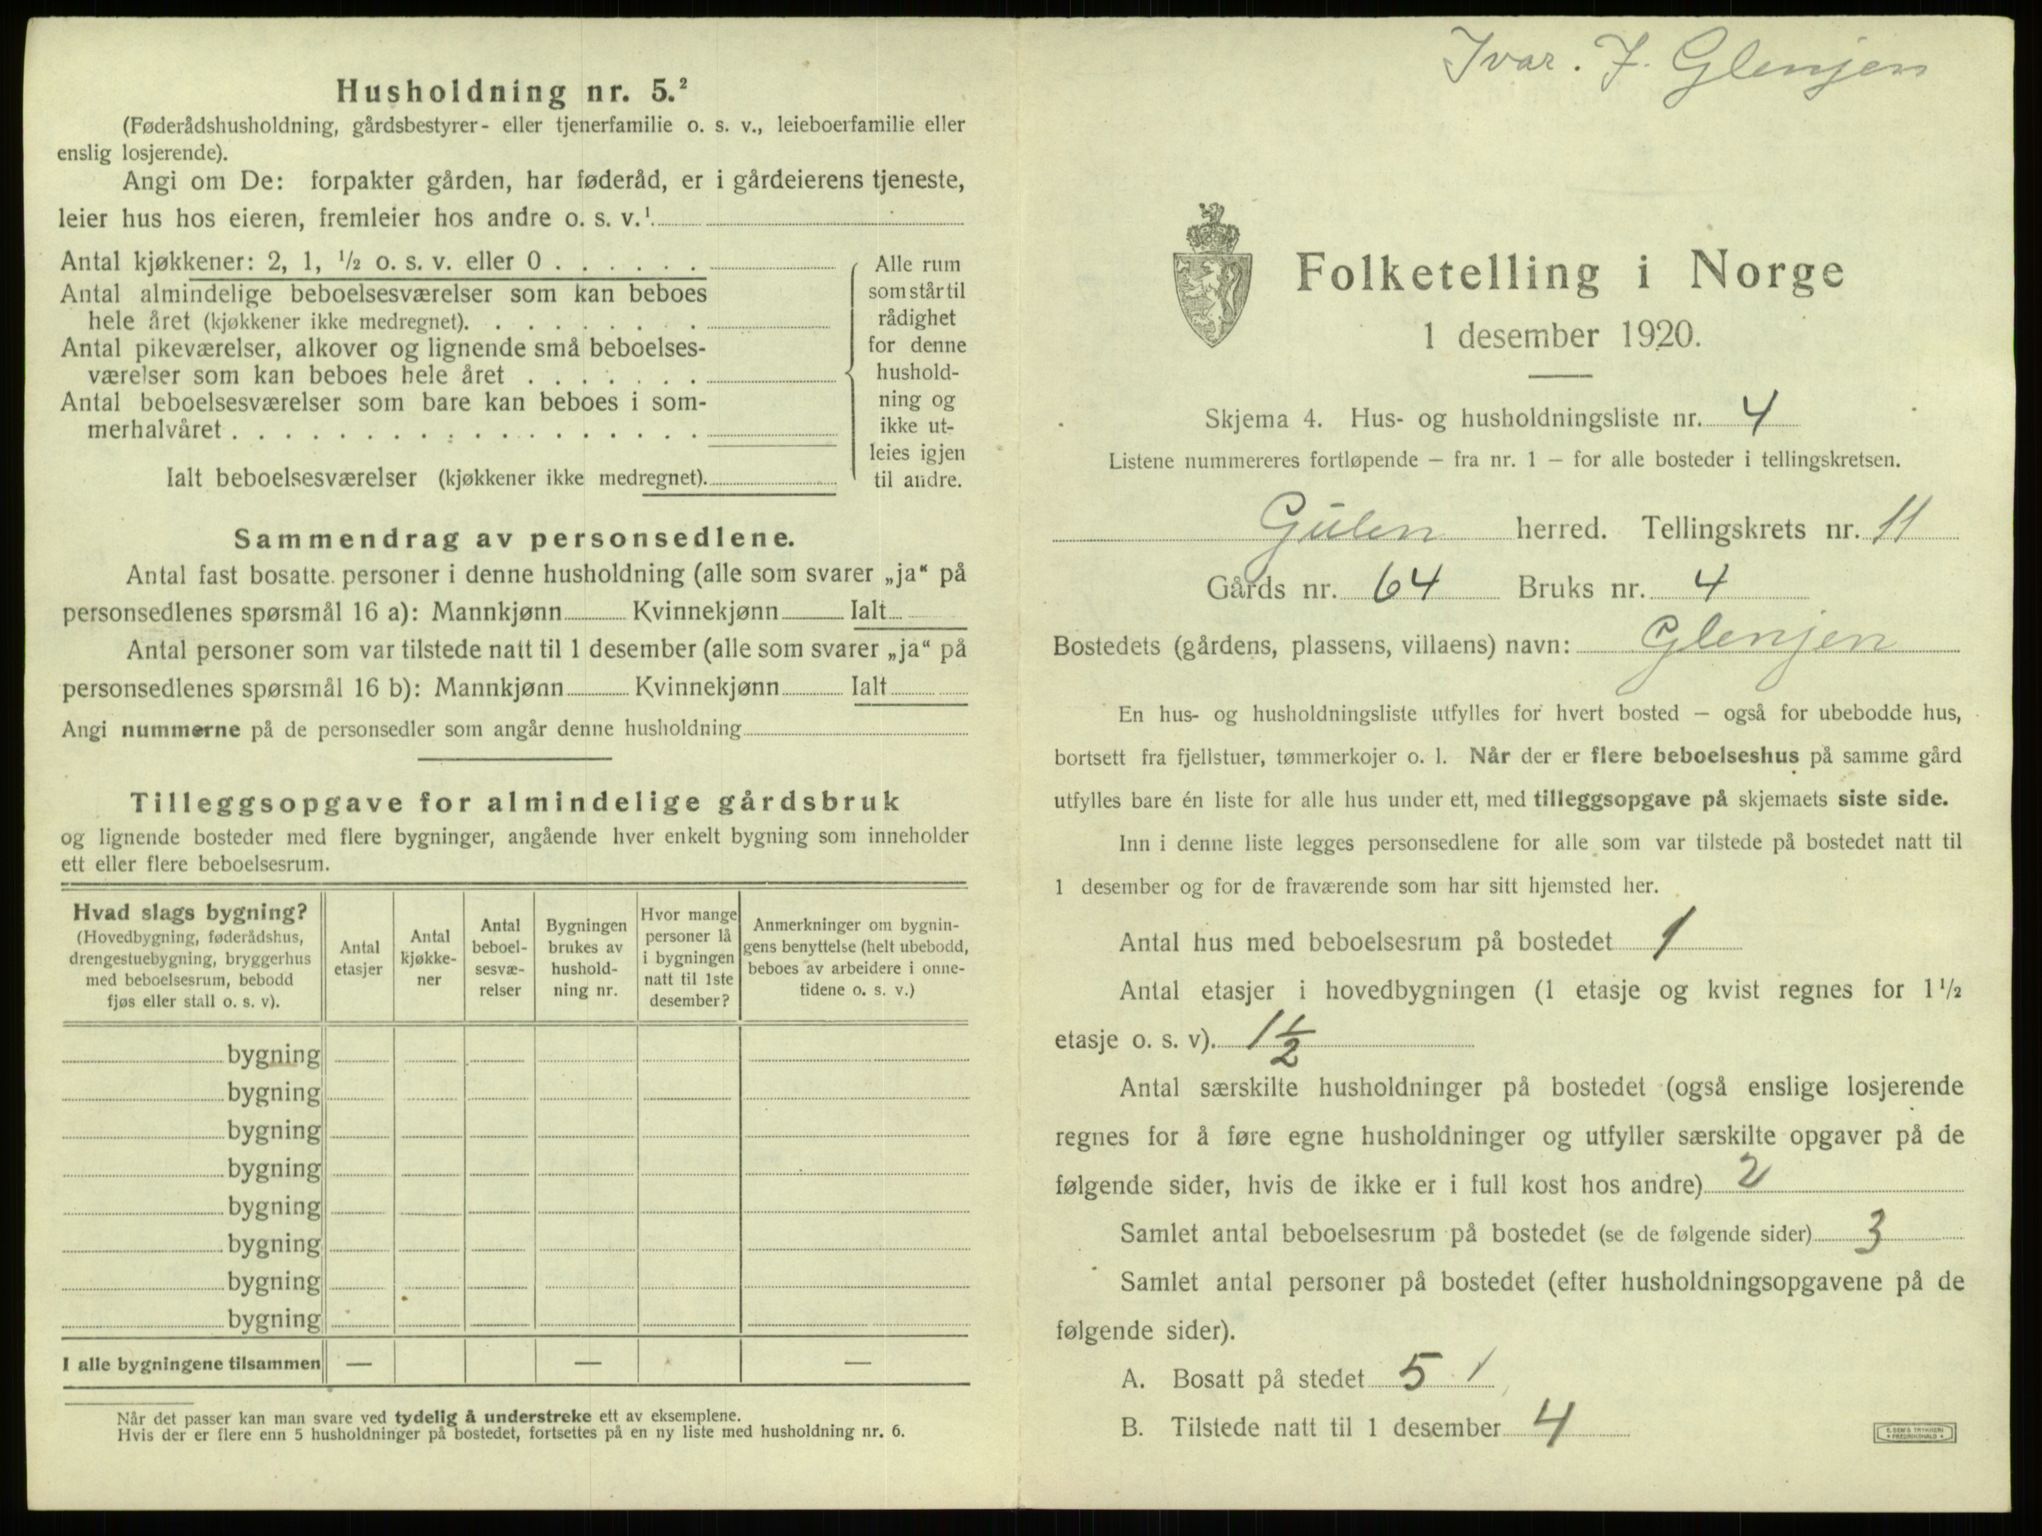 Husholdning nr. 5.²
(Føderådshusholdning, gårdsbestyrer- eller tjenerfamilie o. s. v., leieboerfamilie eller
enslig losjerende).
Angi om De: forpakter gården, har føderåd, er i gårdeierens tjeneste,
leier hus hos eieren, fremleier hos andre o. s. v.¹
Antal kjøkkener: 2, 1, ½ o. s. v. eller 0 . . . . . .
Antal almindelige beboelsesværelser som kan beboes
hele året (kjøkkener ikke medregnet). . . . . . . . .
Antal pikeværelser, alkover og lignende små beboelses-
værelser som kan beboes hele året . . . . . . .
Antal beboelsesværelser som bare kan beboes i som-
merhalvåret . . . . . . . . . . . . . . . . . .
Ialt beboelsesværelser (kjøkkener ikke medregnet).
Alle rum
som står til
rådighet
for denne
hushold-
ning og
ikke ut-
leies igjen
til andre.
Sammendrag av personsedlene.
Antal fast bosatte personer i denne husholdning (alle som svarer „ja“ på
personsedlenes spørsmål 16 a): Mannkjønn Kvinnekjønn Ialt
Antal personer som var tilstede natt til 1 desember (alle som svarer „ja“ på
personsedlenes spørsmål 16 b): Mannkjønn Kvinnekjønn Ialt
Angi nummerne på de personsedler som angår denne husholdning
Tilleggsopgave for almindelige gårdsbruk
og lignende bosteder med flere bygninger, angående hver enkelt bygning som inneholder
ett eller flere beboelsesrum.
Hvad slags bygning?
(Hovedbygning, føderådshus,
drengestuebygning, bryggerhus
med beboelsesrum, bebodd
fjøs eller stall o. s. v).
Antal
etasjer
Antal
kjøkke-
ner
Antal
beboel-
sesvæ-
relser
Bygningen
brukes av
hushold-
ning nr.
Hvor mange
personer lå
i bygningen
natt til 1ste
desember?
Anmerkninger om bygnin-
gens benyttelse (helt ubebodd,
beboes av arbeidere i onne-
tidene o. s. v.)
bygning
bygning
bygning
bygning
bygning
bygning
bygning
bygning
I alle bygningene tilsammen — — —
Når det passer kan man svare ved tydelig å understreke ett av eksemplene.
Hvis der er flere enn 5 husholdninger på bostedet, fortsettes på en ny liste med husholdning nr. 6.
Ivar. J. Glenjen
Folketelling i Norge
1 desember 1920.
Skjema 4. Hus- og husholdningsliste nr. 4
Listene nummereres fortløpende — fra nr. 1 — for alle bosteder i tellingskretsen.
Gulen herred. Tellingskrets nr. 11
Gårds nr. 64 Bruks nr. 4
Bostedets (gårdens, plassens, villaens) navn: Glenjen
En hus- og husholdningsliste utfylles for hvert bosted — også for ubebodde hus,
bortsett fra fjellstuer, tømmerkojer o. l. Når der er flere beboelseshus på samme gård
utfylles bare én liste for alle hus under ett, med tilleggsopgave på skjemaets siste side.
Inn i denne liste legges personsedlene for alle som var tilstede på bostedet natt til
1 desember og for de fraværende som har sitt hjemsted her.
Antal hus med beboelsesrum på bostedet 1
Antal etasjer i hovedbygningen (1 etasje og kvist regnes for 1½
etasje o. s. v). 1½
Antal særskilte husholdninger på bostedet (også enslige losjerende
regnes for å føre egne husholdninger og utfyller særskilte opgaver på de
følgende sider, hvis de ikke er i full kost hos andre) 2
Samlet antal beboelsesrum på bostedet (se de følgende sider) 3
Samlet antal personer på bostedet (efter husholdningsopgavene på de
følgende sider).
A. Bosatt på stedet 5 /
B. Tilstede natt til 1 desember 4
E. SEM'S TRYKKERI
FREDRIKSHALD